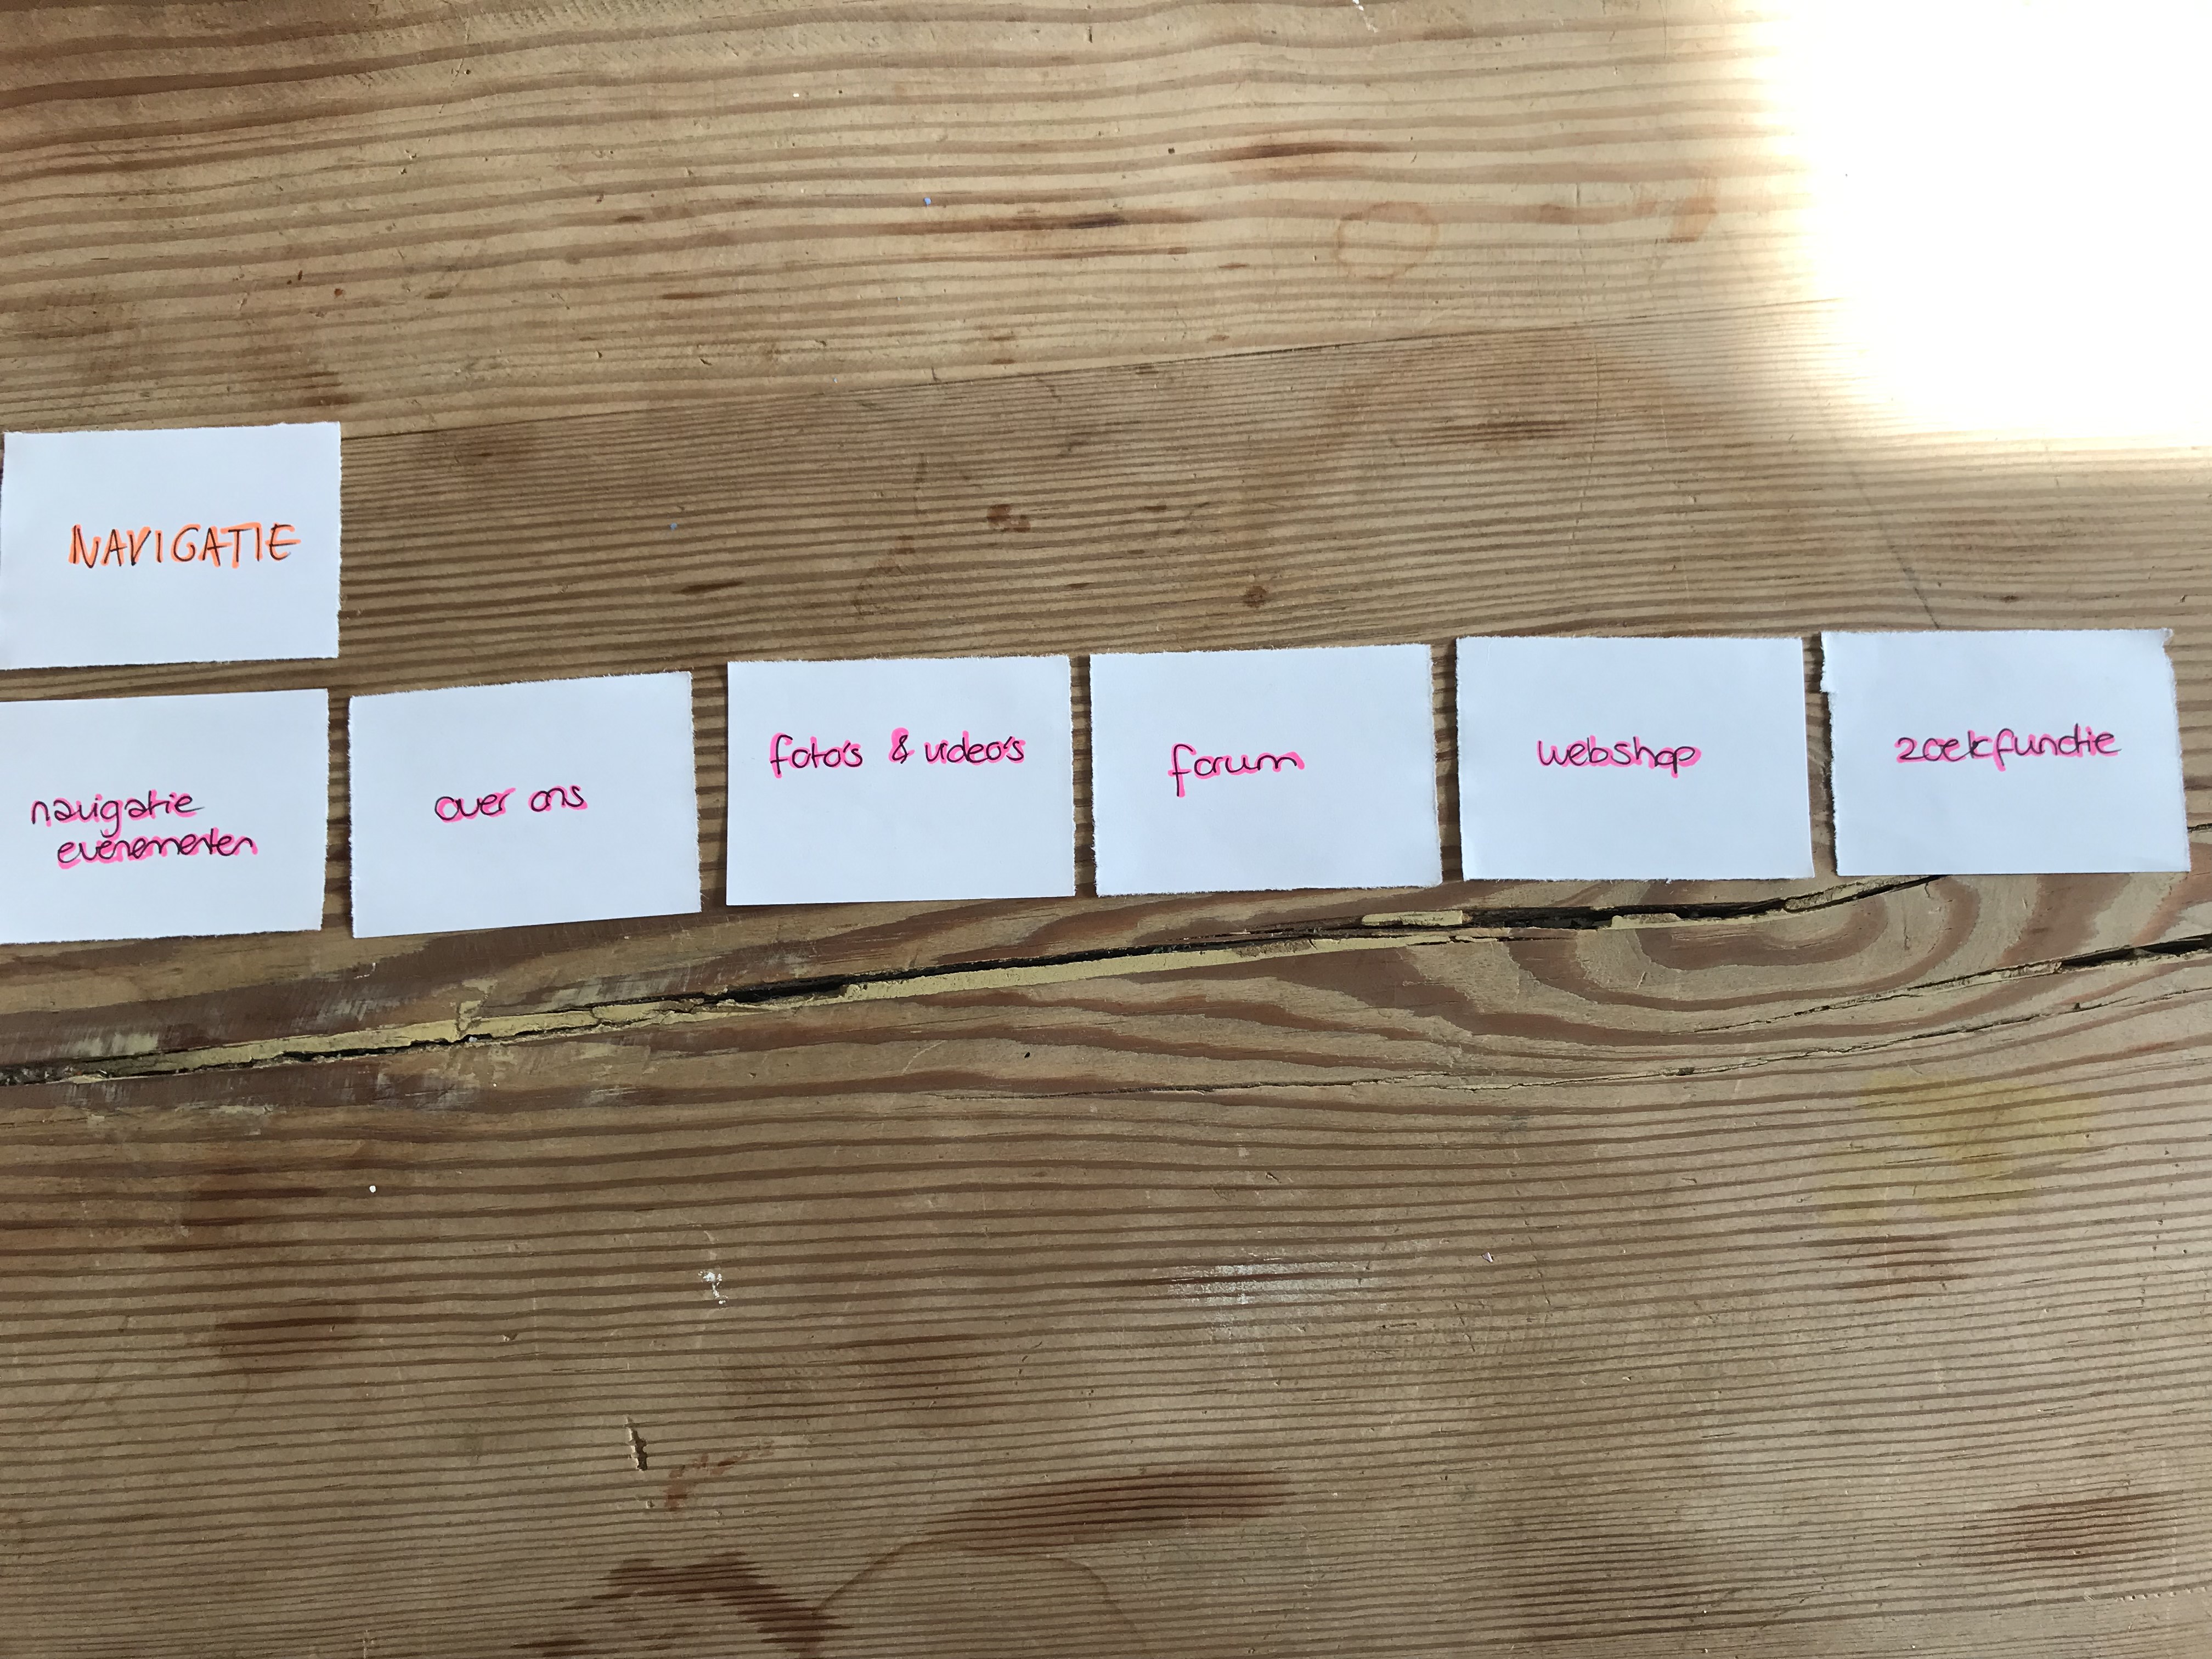 NAVIGATIE
navigatie
evenementen
over ons
foto's & video's
forum
webshop
zoekfunctie